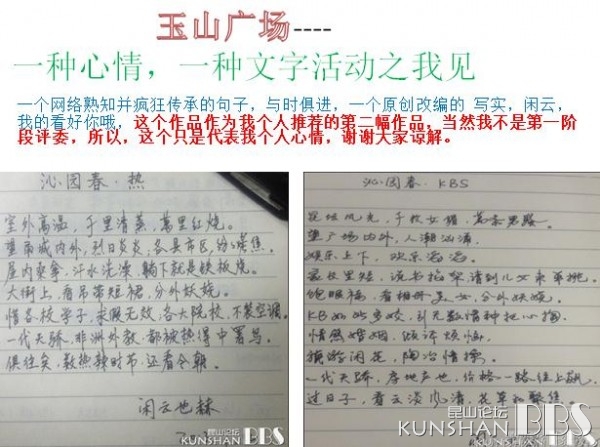 玉山广场----
一种心情，一种文字活动之我见
一个网络熟知并疯狂传承的句子，与时俱进，一个原创改编的 写实，闲云，
我的看好你哦，这个作品作为我个人推荐的第二幅作品，当然我不是第一阶
段评委，所以，这个只是代表我个人心情，谢谢大家谅解。
沁园春·热
室外高温，千里清蒸，万里红烧。
望雨城内外，烈日炎炎，各县市区，焦。
屋内桑拿，汗水洗澡，躺下就是铁板烧。
大街上，看吊带短裙，分外妖娆。
惜各校学子，求眠无效，各大院校，不装空调。
一代天骄，非洲外教，都被热得中暑马。
俱往矣，数热辣时节，还看今朝。
闲云也赫
昆山论坛
KUNSHAN BBS
沁园春·KBS
昆坛风光，千枚女猪，万条男
望广场内外，人潮汹涌。
娱乐上下，欢乐滔滔。
请到儿女来单挑。
饱眼福，看相册美女，分外妖娆。
KB如此多娇，引无数情种把心掏。
情感婚姻，倾诉烦恼。
旅游闲花，陶冶情操。
一代天骄，房地产也，价格一路往上飙。
过日子，看云淡风清，花草和聚焦。
昆山论坛
KUNSHAN BBS